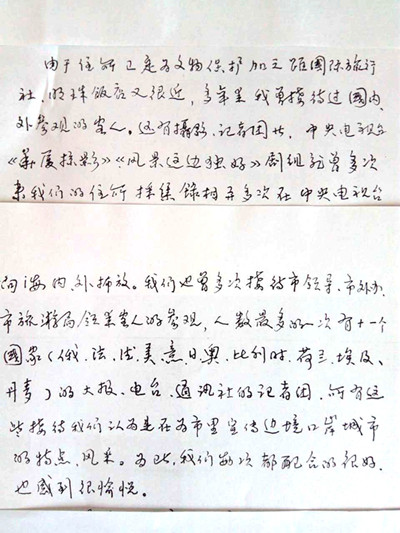 由于住所已定为文物保护加之距国际旅行
社、明珠饭店又很近，多年来我曾接待过国内、
外参观的客人。还有摄影、记者团,中央电视台
《华厦掠影》《风景这边独好》剧组访曾多次
来我们的住所採集錄相并多次在中央电视台
向海内、外播放。我们也曾多次接待市领导、市外办、
市旅游局领来客人的参观，人数最多的一次有十一个
國家（俄、法、德、美、意、日、奥、比利时、荷兰、埃及、
丹麦）的大报、电台、通讯社的记者团，所有这
些接待我们认为是在为市里宣传边境口岸城市
的特点、风采。为此，我们每次都配合的很好、
也感到很愉悦。